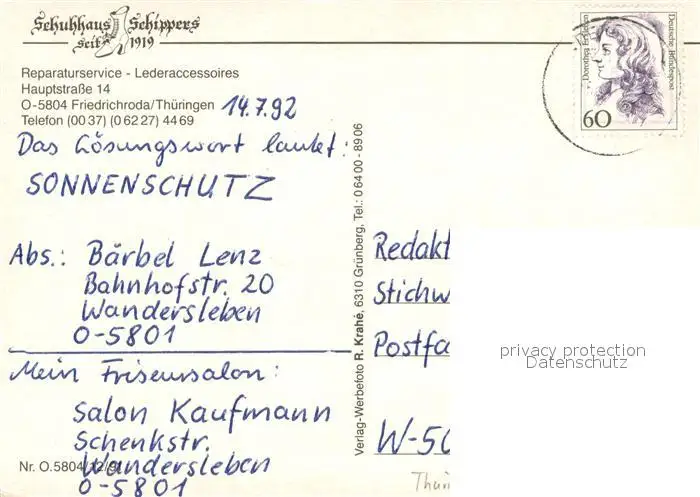 Schuhhaus Schippers
seit 1919
Reparaturservice - Lederaccessoires
Hauptstraße 14
O-5804 Friedrichroda/Thüringen
Telefon (00 37) (0 62 27) 44 69
14.7.92
Das Lösungswort lautet:
SONNENSCHUTZ
Abs.: Bärbel Lenz
Bahnhofstr. 20
Wandersleben
O-5801
Mein Friseursalon:
Salon Kaufmann
Schenkstr.
Wandersleben
O-5801
Nr. O.5804/12/91
Verlag-Werbefoto R. Krahé, 6310 Grünberg, Tel.: 0 64 00 - 89 06
Dorothea Erxleben
Deutsche Bundespost
60
Redakt
Stichw
Postfa
W-50
Thür
privacy protection
Datenschutz